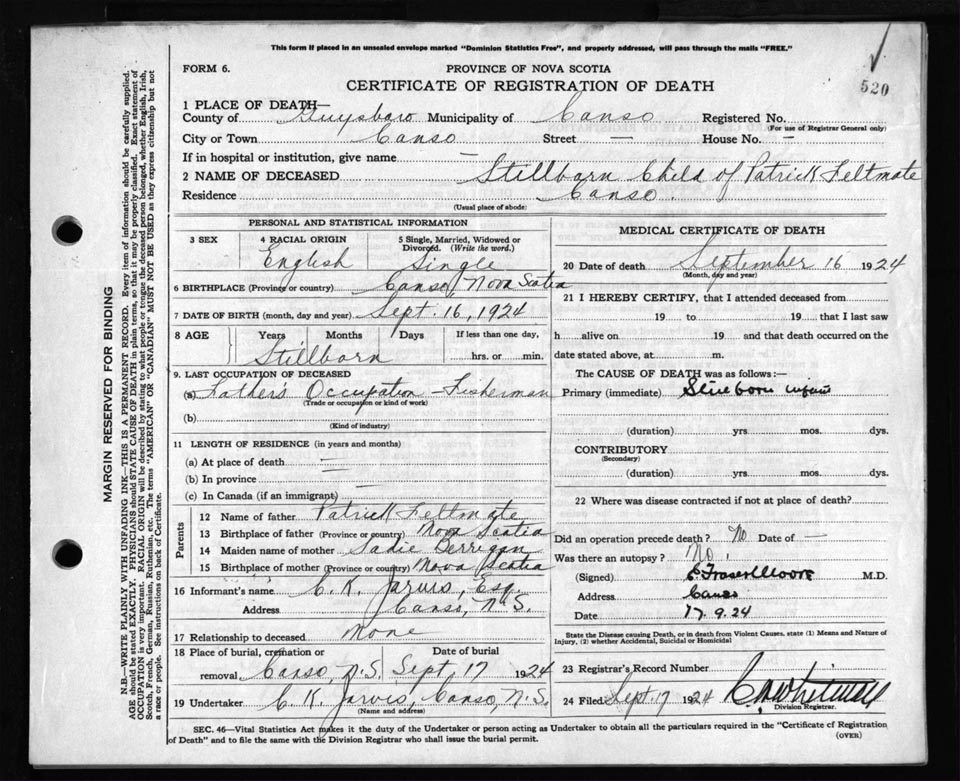 This form if placed in an unsealed envelope marked "Dominion Statistics Free", and properly addressed, will pass through the mails "FREE."
FORM 6.
PROVINCE OF NOVA SCOTIA
CERTIFICATE OF REGISTRATION OF DEATH
520
1 PLACE OF DEATH—
County of Guysboro Municipality of Canso Registered No.
(For use of Registrar General only)
City or Town Canso Street — House No. —
If in hospital or institution, give name —
2 NAME OF DECEASED Stillborn Child of Patrick Feltmate
Residence Canso.
(Usual place of abode)
PERSONAL AND STATISTICAL INFORMATION
3 SEX
4 RACIAL ORIGIN
English
5 Single, Married, Widowed or Divorced. (Write the word.)
Single
6 BIRTHPLACE (Province or country) Canso, Nova Scotia
7 DATE OF BIRTH (month, day and year) Sept. 16, 1924
8 AGE Years Months Days If less than one day,
Stillborn hrs. or min.
9. LAST OCCUPATION OF DECEASED
(a) Father's Occupation - Fisherman
(Trade or occupation or kind of work)
(b)
(Kind of industry)
11 LENGTH OF RESIDENCE (in years and months)
(a) At place of death —
(b) In province —
(c) In Canada (if an immigrant) —
Parents
12 Name of father Patrick Feltmate
13 Birthplace of father (Province or country) Nova Scotia
14 Maiden name of mother Sadie Berrigan
15 Birthplace of mother (Province or country) Nova Scotia
16 Informant's name C. K. Jarvis, Esq.
Address Canso, N.S.
17 Relationship to deceased None
18 Place of burial, cremation or removal Date of burial
Canso, N.S. Sept. 17 1924
19 Undertaker C. K. Jarvis, Canso, N.S.
(Name and address)
MEDICAL CERTIFICATE OF DEATH
20 Date of death September 16 1924
(Month, day and year)
21 I HEREBY CERTIFY, that I attended deceased from
19 to 19 that I last saw
h alive on 19 and that death occurred on the
date stated above, at m.
The CAUSE OF DEATH was as follows:—
Primary (immediate) Stillborn infant
(duration) yrs mos. dys.
CONTRIBUTORY
(Secondary)
(duration) yrs. mos. dys.
22 Where was disease contracted if not at place of death?
Did an operation precede death? No Date of —
Was there an autopsy? No.
(Signed) C Fraser Moore M.D.
Address Canso
Date 17.9.24
State the Disease causing Death, or in death from Violent Causes, state (1) Means and Nature of Injury, (2) whether Accidental, Suicidal or Homicidal
23 Registrar's Record Number
24 Filed Sept. 17 1924 Whitman
Division Registrar.
SEC. 46—Vital Statistics Act makes it the duty of the Undertaker or person acting as Undertaker to obtain all the particulars required in the "Certificate of Registration
of Death" and to file the same with the Division Registrar who shall issue the burial permit.
(OVER)
MARGIN RESERVED FOR BINDING
N.B.—WRITE PLAINLY WITH UNFADING INK—THIS IS A PERMANENT RECORD. Every item of information should be carefully supplied.
AGE should be stated EXACTLY. PHYSICIANS should STATE CAUSE OF DEATH in plain terms, so that it may be properly classified. Exact statement of
OCCUPATION is very important. RACIAL ORIGIN will be described by stating to what people or tongue the deceased person belonged, whether English, Irish,
Scotch, French, German, Russian, Ruthenian, etc. The terms "AMERICAN" OR "CANADIAN" MUST NOT BE USED as they express citizenship but not
a race or people. See instructions on back of Certificate.